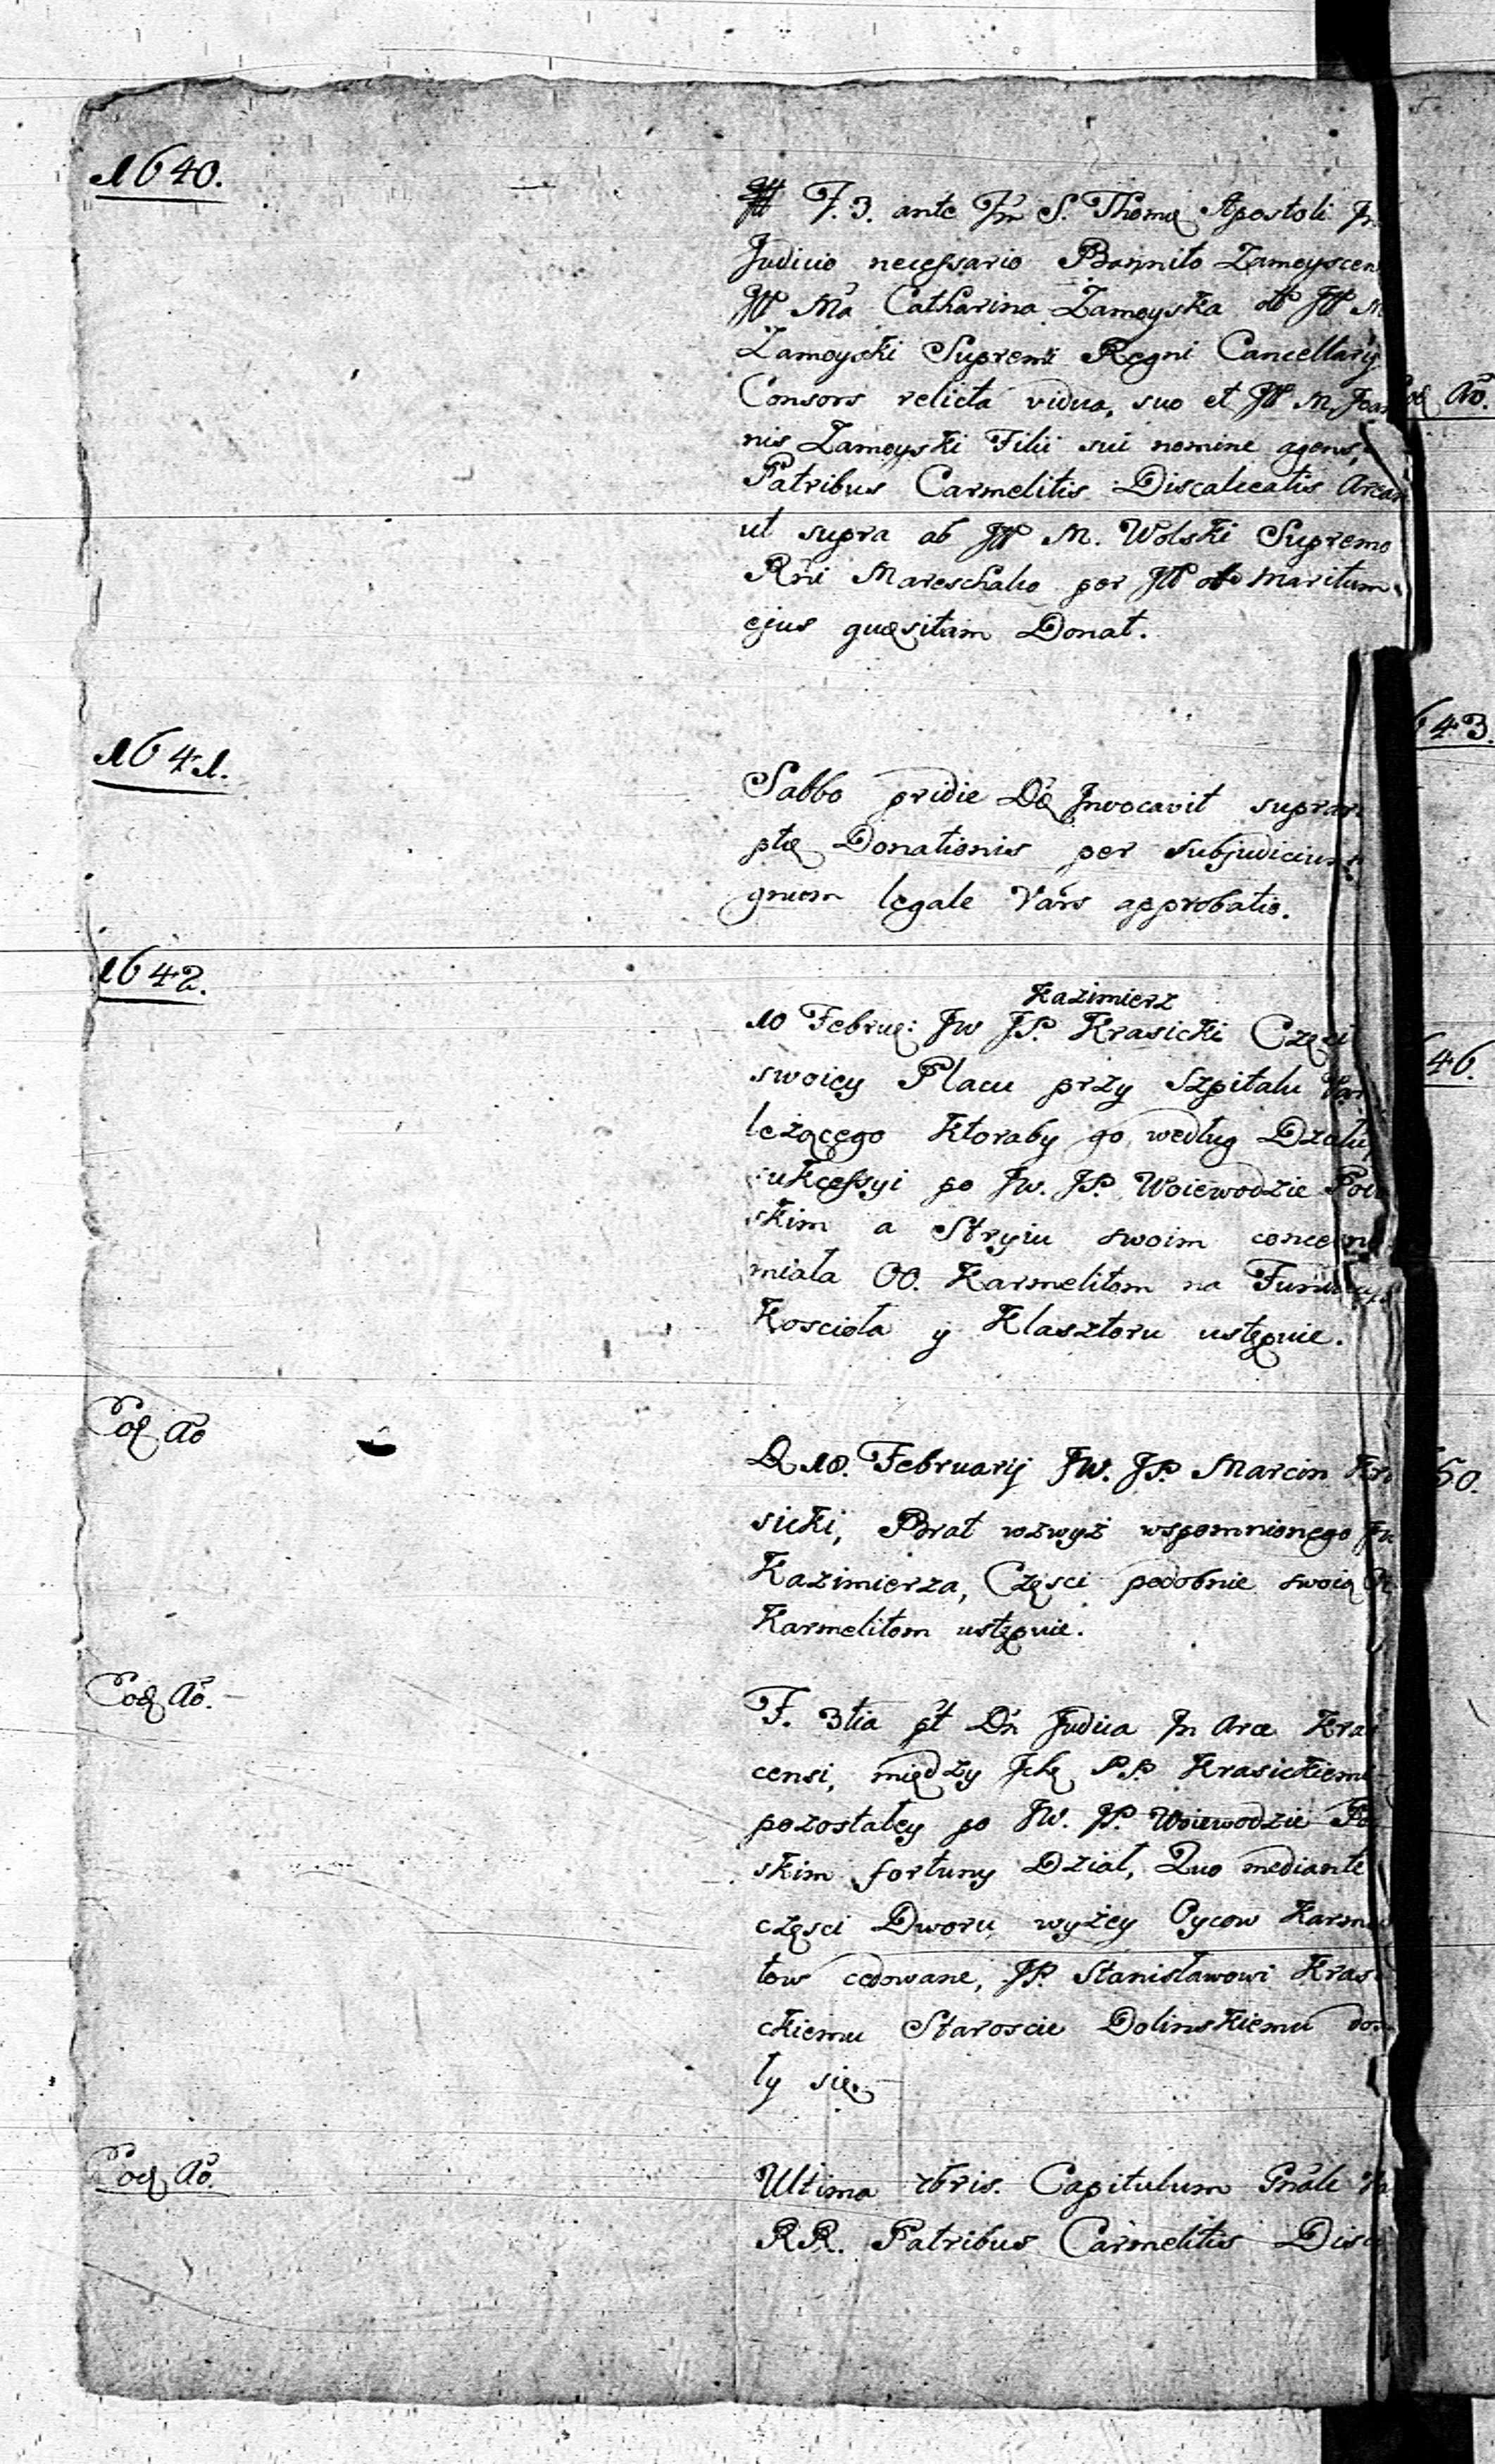 1640.
F. 3. ante Fm S. Thomę Apostoli
Judicio necessario Bannito Zamoyscen
Ma Catharina Zamoyska
Zamoyski Supremi Regni Cancellarij
Consors relicta vidua, suo et M. Joan
nis Zamoyski Filii sui nomine agens,
Patribus Carmelitis Discalceatis Aream
ut supra ab M. Wolski Supremo
Rni Mareschalco per maritum
ejus quęsitam Donat.
1641.
Sabbo pridie Dcę Invocavit supra
ptę Donationis per subjudicium
gnum legale Vars approbatio.
1642.
Kazimierz
10 Februę: JW JP. Krasicki Częsci
swoiey Placu przy Szpitalu
leżącego ktoraby go według Dzału,
sukcessyi po JW. JP. Woiewodzie
skim a Stryiu swoim
miała OO. Karmelitom na
Koscioła y Klasztoru ustępuie.
Eod Ao
D 10. Februarij JW. JP. Marcin Kra
sicki, Brat wzwyż wspomnionego
Kazimierza, Częsci podobnie swoią
Karmelitom ustępuie.
Eod Ao.
F. 3tia pt Dn Judica in Arce
censi, między Ich PP. Krasickiemi
pozostałey po JW. JP. Woiewodzie
skim fortuny Dział, Quo mediante
częsci Dworu, wyżey Oycow Karme
tow cedowane, JP. Stanisławowi Krasi
ckiemu Staroscie Dolinskiemu dos
ły się.
Eod Ao.
Ultima 7bris. Capitulum Gnale
RR. Patribus Carmelitis Disc
Eod Ao.
643.
46.
50.